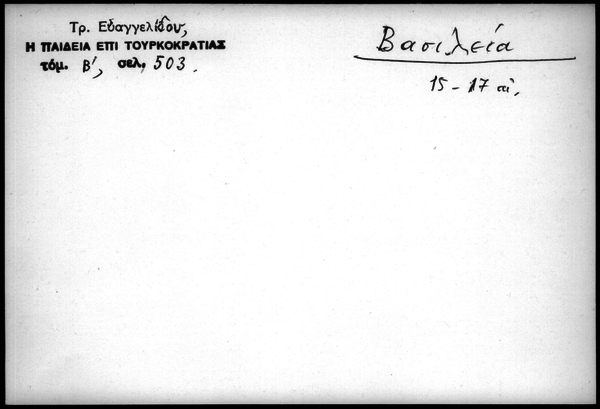 Τρ. Εὐαγγελίδου,
Η ΠΑΙΔΕΙΑ ΕΠΙ ΤΟΥΡΚΟΚΡΑΤΙΑΣ
τόμ. Β', σελ. 503.
Βασιλεία
15-17 αἰ.